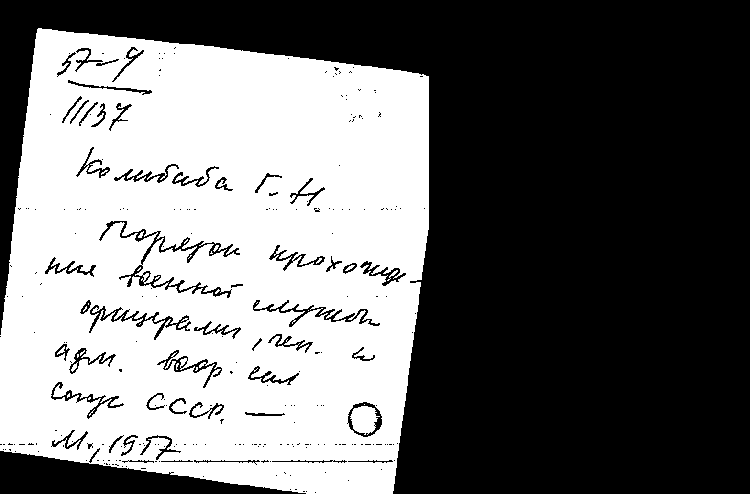 57-4
11137
Колибаба Г. Н.
Порядок прохожде-
ния военной службы
офицерами, ген. и
адм. воор. сил
Союза СССР. —
М., 1957